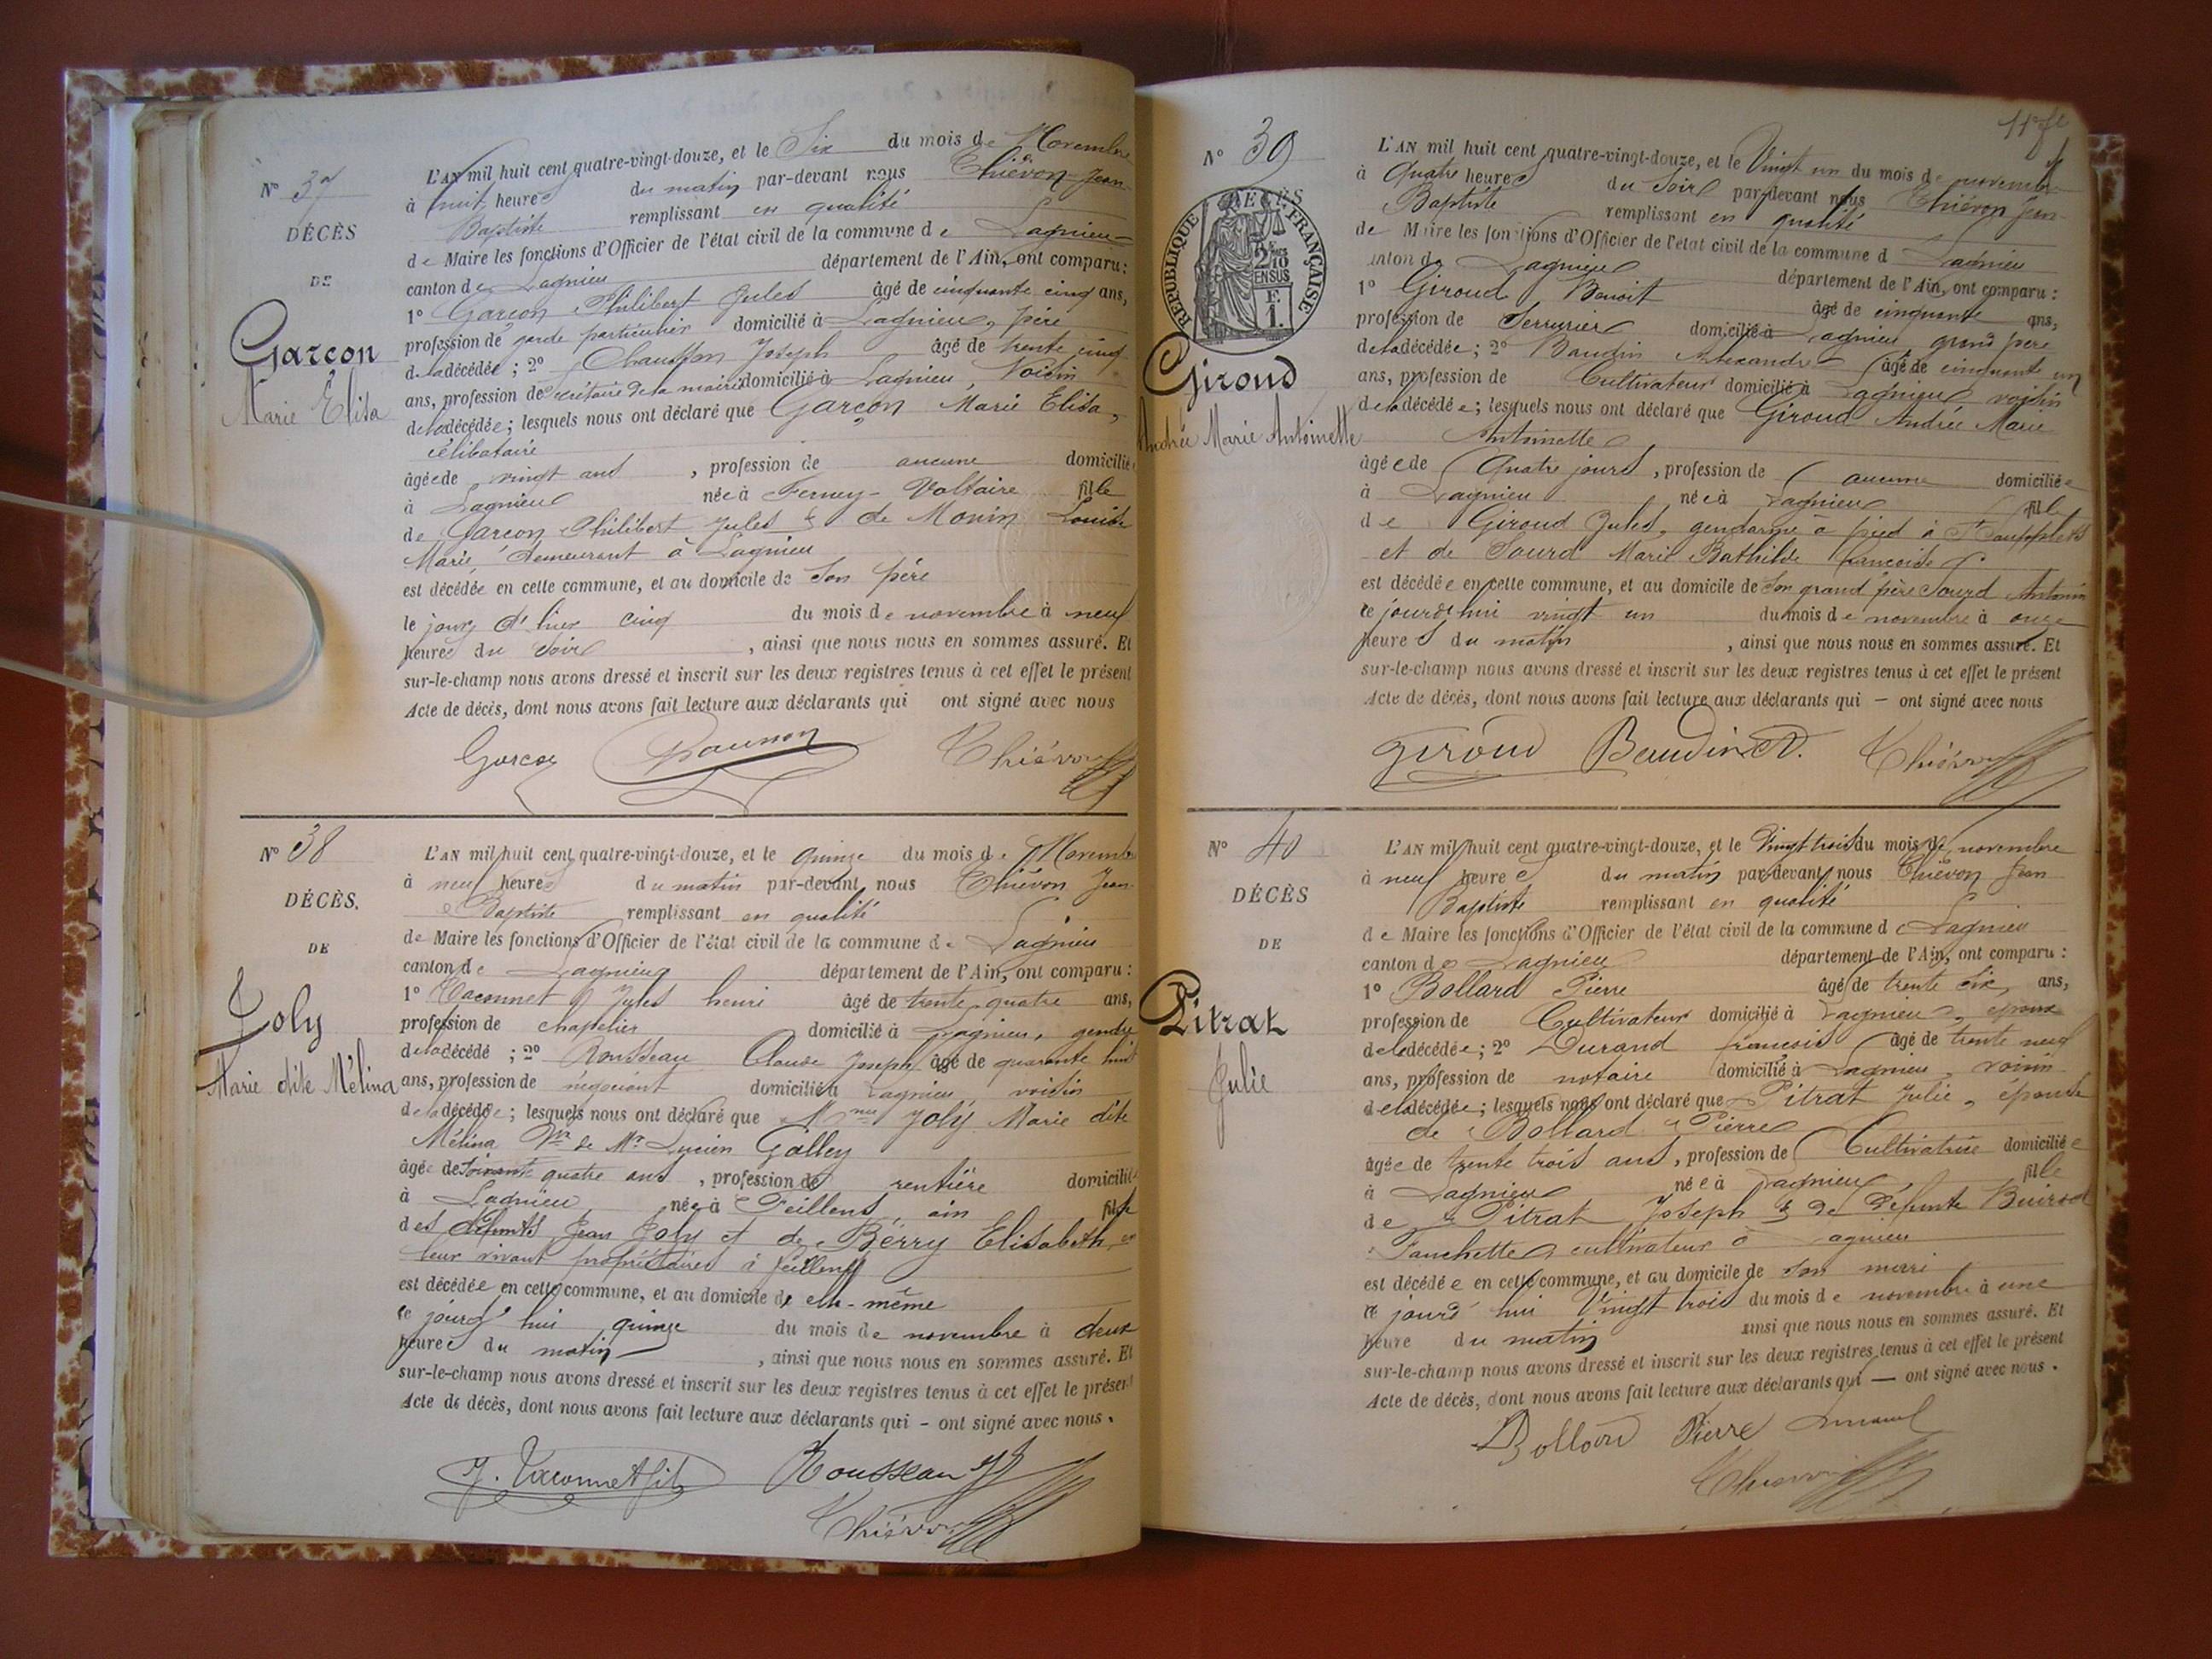 N° 37
DÉCÈS
DE
Garcon
Marie Élisa
L'AN mil huit cent quatre-vingt-douze, et le Six du mois de Novembre
à huit heures du matin par-devant nous Thiévon Jean-
Baptiste remplissant en qualité
de Maire les fonctions d'Officier de l'état civil de la commune de Lagnieu
canton de Lagnieu département de l'Ain, ont comparu :
1° Garcon Philibert Jules âgé de cinquante cinq ans,
profession de garde particulier domicilié à Lagnieu, père
de la décédée ; 2° Joseph âgé de trente cinq
ans, profession de secrétaire de la mairie domicilié à Lagnieu, Voisin
de la décédée ; lesquels nous ont déclaré que Garcon Marie Elisa,
célibataire
âgée de vingt ans , profession de aucune domiciliée
à Lagnieu née à Ferney-Voltaire fille
de Garcon Philibert Jules & de Monin Louise
Marie demeurant à Lagnieu
est décédée en cette commune, et au domicile de son père
le jour d'hier cinq du mois de novembre à neuf
heures du soir , ainsi que nous nous en sommes assuré. Et
sur-le-champ nous avons dressé et inscrit sur les deux registres tenus à cet effet le présent
Acte de décès, dont nous avons fait lecture aux déclarants qui ont signé avec nous
Garcon Thiévon
N° 38
DÉCÈS.
DE
Joly
Marie dite Mélina
L'AN mil huit cent quatre-vingt-douze, et le quinze du mois de Novembre
à neuf heures du matin par-devant nous Thiévon Jean-
Baptiste remplissant en qualité
de Maire les fonctions d'Officier de l'état civil de la commune de Lagnieu
canton de Lagnieu département de l'Ain, ont comparu :
1° Taconnet Jules henri âgé de trente quatre ans,
profession de chapelier domicilié à Lagnieu, gendre
de la décédé ; 2° Rousseau Claude Joseph âgé de quarante huit
ans, profession de négociant domicilié à Lagnieu, voisin
de la décédée ; lesquels nous ont déclaré que Mme Joly Marie dite
Mélina Vve de Mr Lucien Galley
âgée de soixante quatre ans , profession de rentière domiciliée
à Lagnieu née à Feillens, ain fille
des défunts Jean Joly et de Bérry Elisabeth, en
leur vivant propriétaires à feillens
est décédée en cette commune, et au domicile de elle-même
ce jourd'hui quinze du mois de novembre à deux
heures du matin , ainsi que nous nous en sommes assuré. Et
sur-le-champ nous avons dressé et inscrit sur les deux registres tenus à cet effet le présent
Acte de décès, dont nous avons fait lecture aux déclarants qui - ont signé avec nous.
J. Taconnet fils Rousseau
Thiévon
11e ft
N° 39
DÉCÈS
RÉPUBLIQUE FRANÇAISE
2/10 EN SUS
F. 1.
Giroud
Andrée Marie Antoinette
L'AN mil huit cent quatre-vingt-douze, et le Vingt un du mois de novembre
à Quatre heures du Soir par-devant nous Thiévon Jean-
Baptiste remplissant en qualité
de Maire les fonctions d'Officier de l'état civil de la commune d Lagnieu
canton de Lagnieu département de l'Ain, ont comparu :
1° Giroud Benoit âgé de cinquante ans,
profession de Serrurier domicilié à Lagnieu grand père
de la décédée ; 2° Baudin Alexandre âgé de cinquante un
ans, profession de Cultivateur domicilié à Lagnieu voisin
de la décédée ; lesquels nous ont déclaré que Giroud Andrée Marie
Antoinette
âgée de Quatre jours , profession de aucune domiciliée
à Lagnieu née à Lagnieu fille
de Giroud Jules, gendarme à pied à St Soupplets
et de Sourd Marie Bathilde francoise
est décédée en cette commune, et au domicile de son grand père Sourd Antonin
ce jourd'hui vingt un du mois de novembre à onze
heures du matin , ainsi que nous nous en sommes assuré. Et
sur-le-champ nous avons dressé et inscrit sur les deux registres tenus à cet effet le présent
Acte de décès, dont nous avons fait lecture aux déclarants qui — ont signé avec nous
Giroud Baudin A. Thiévon
N° 40
DÉCÈS
DE
Pitrat
Julie
L'AN mil huit cent quatre-vingt-douze, et le Vingt trois du mois de novembre
à neuf heures du matin par-devant nous Thiévon Jean
Baptiste remplissant en qualité
de Maire les fonctions d'Officier de l'état civil de la commune de Lagnieu
canton de Lagnieu département de l'Ain, ont comparu :
1° Bollard Pierre âgé de trente six ans,
profession de Cultivateur domicilié à Lagnieu, époux
de la décédée ; 2° Durand francois âgé de trente neuf
ans, profession de notaire domicilié à Lagnieu, voisin
de la décédée ; lesquels nous ont déclaré que Pitrat Julie, épouse
de Bollard Pierre
âgée de trente trois ans , profession de Cultivatrice domiciliée
à Lagnieu née à Lagnieu fille
de Pitrat Joseph & de défunte Buirod
Fanchette cultivateur à Lagnieu
est décédée en cette commune, et au domicile de son marri
ce jourd'hui Vingt trois du mois de novembre à une
heure du matin ainsi que nous nous en sommes assuré. Et
sur-le-champ nous avons dressé et inscrit sur les deux registres tenus à cet effet le présent
Acte de décès, dont nous avons fait lecture aux déclarants qui — ont signé avec nous.
Bollard Pierre Durand
Thiévon